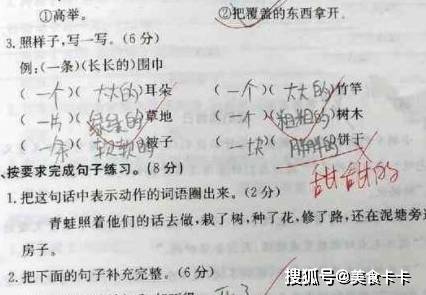 ①高举。 ②把覆盖的东西拿开。
3.照样子,写一写。(6分)
例:(一条)(长长的)围巾
(一个)(大大的)耳朵 (一个)(大大的)竹竿
(一片)(绿绿的)草地 (一个)(粗粗的)树木
(一条)(的)被子 (一块)(的)饼干
甜甜的
、按要求完成句子练习。(8分)
1.把这句话中表示动作的词语圈出来。(2分)
青蛙照着他们的话去做,栽了树,种了花,修了路,还在泥塘旁边
房子。
2.把下面的句子补充完整。(6分)
搜狐号@美食卡卡